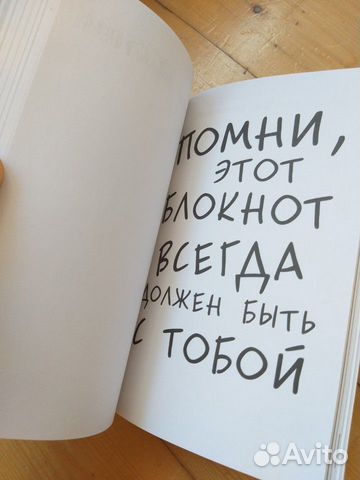 ПОМНИ,
ЭТОТ
БЛОКНОТ
ВСЕГДА
ДОЛЖЕН БЫТЬ
С ТОБОЙ
Avito